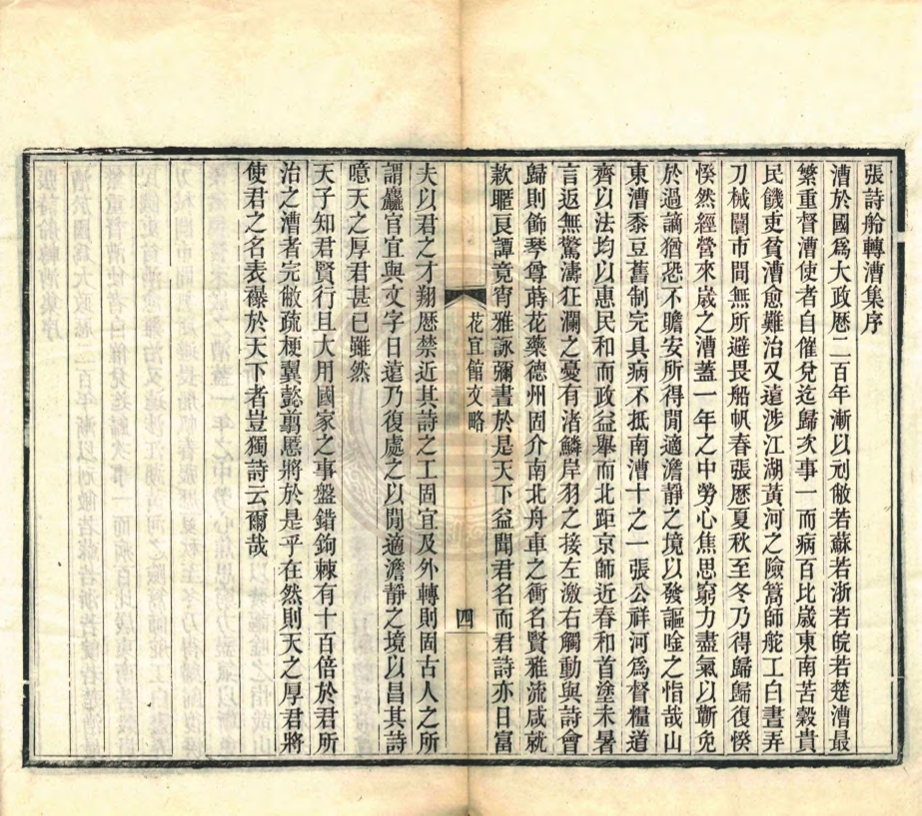 張詩舲轉漕集序
漕於國爲大政歷二百年漸以刓敝若蘇若浙若皖若楚漕最
繁重督漕使者自催兌迄歸次事一而病百比歲東南苦穀貴
民饑吏貧漕愈難治又遠涉江湖黃河之險篙師舵工白晝弄
刀械鬭市間無所避畏船帆春張歷夏秋至冬乃得歸歸復惸
惸然經營來歲之漕蓋一年之中勞心焦思窮力盡氣以蘄免
於過謫猶恐不贍安所得閒適澹靜之境以發謳唫之恉哉山
東漕黍豆舊制完具病不抵南漕十之一張公祥河爲督糧道
齊以法均以惠民和而政益舉而北距京師近春和首塗未暑
言返無驚濤狂瀾之憂有渚鱗岸羽之接左激右觸動與詩會
歸則飾琴尊蒔花藥德州固介南北舟車之衝名賢雅流咸就
款暱良譚竟宵雅詠彌晝於是天下益聞君名而君詩亦日富
花宜館文略
四
夫以君之才翔歷禁近其詩之工固宜及外轉則固古人之所
謂麤官宜與文字日遠乃復處之以閒適澹靜之境以昌其詩
噫天之厚君甚已雖然
天子知君賢行且大用國家之事盤錯鉤棘有十百倍於君所
治之漕者完敝疏梗翼懿翦慝將於是乎在然則天之厚君將
使君之名表襮於天下者豈獨詩云爾哉